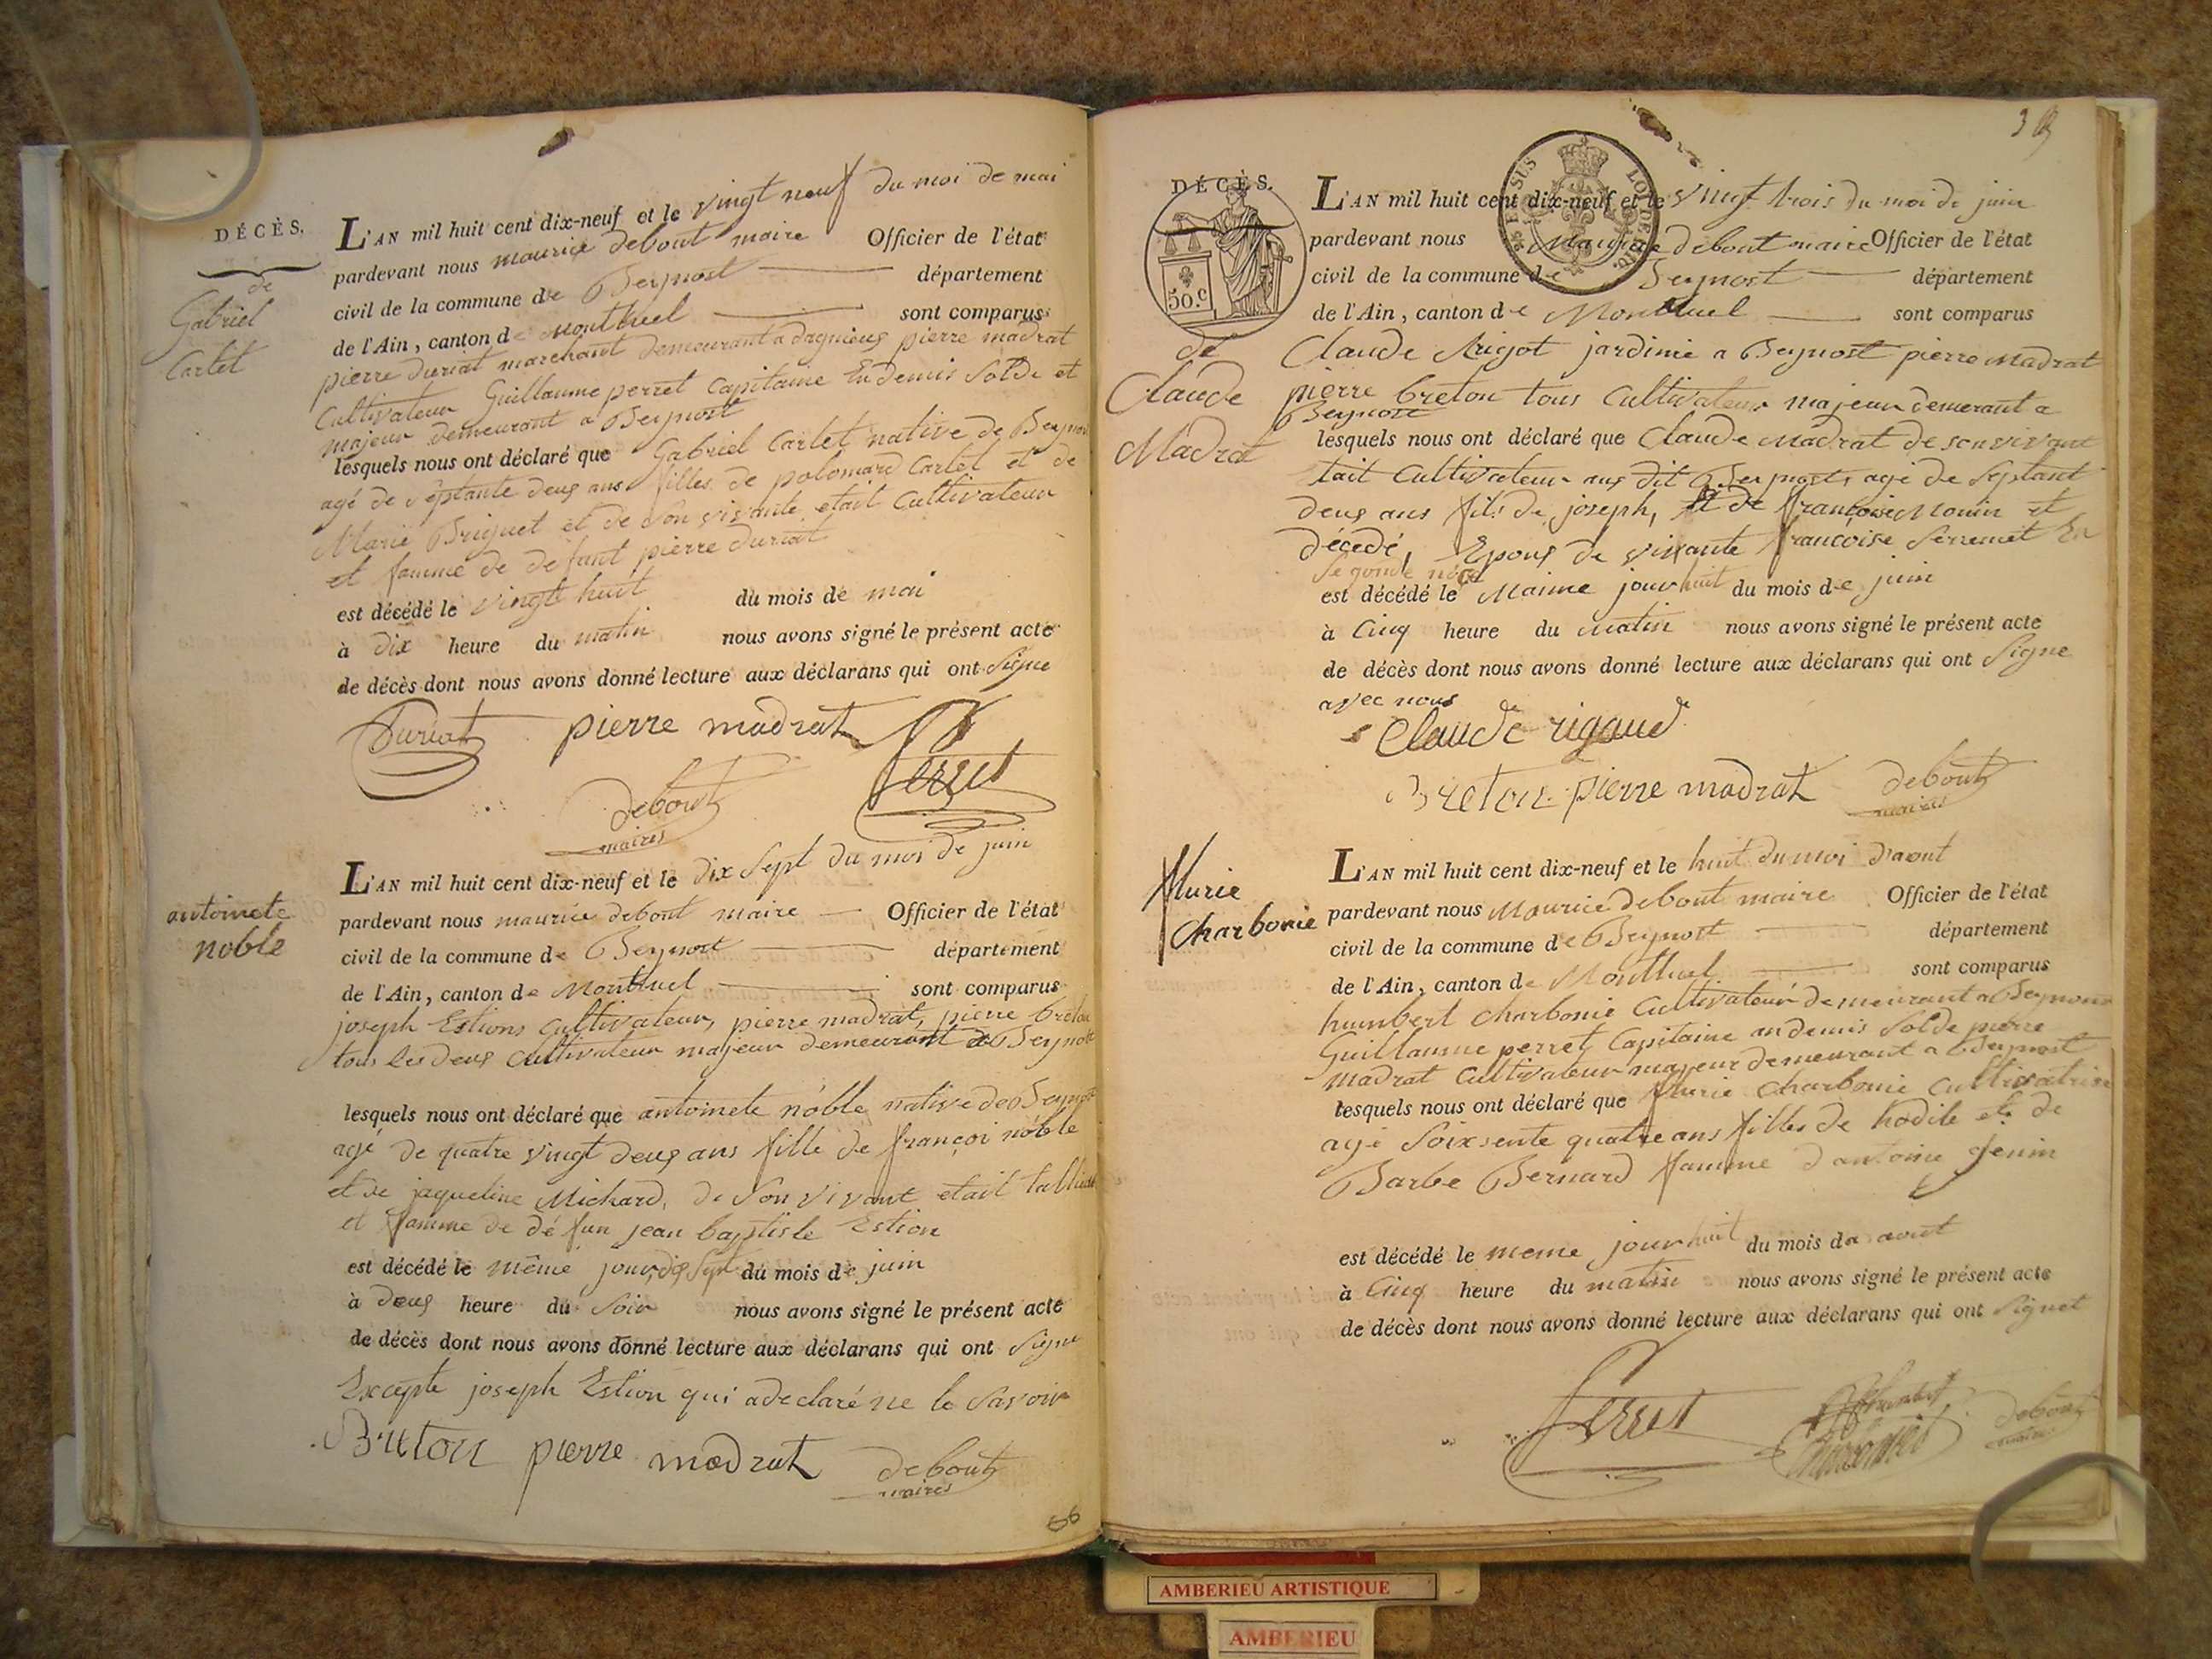 DÉCÈS.
de
Gabriel
Cartet
L'AN mil huit cent dix-neuf et le vingt neuf du moi de mai
pardevant nous maurice debout maire Officier de l'état
civil de la commune de Beynost département
de l'Ain, canton de Montluel sont comparus
pierre duriat marchant demeurant a dagnieus pierre madrat
Cultivateur Guillaume perret Capitaine En demis Solde et
majeur demeurant a Beynost
lesquels nous ont déclaré que Gabriel Cartet native de Beynost
agé de septante deus ans filles de polomard Cartet et de
Marie Briguet et de son vivante etait Cultivateur
et famme de defunt pierre duriat
est décédé le vingt huit du mois de mai
à dix heure du matin nous avons signé le présent acte
de décès dont nous avons donné lecture aux déclarans qui ont Signe
Duriat pierre madrat Perret
debout
maires
antoinete
noble
L'AN mil huit cent dix-neuf et le dix Sept du moi de juin
pardevant nous maurice debout maire Officier de l'état
civil de la commune de Beynost département
de l'Ain, canton de Montluel sont comparus
joseph Estions Cultivateur, pierre madrat, pierre breton
tous les deus Cultivateur majeur demeurant a Beynost
lesquels nous ont déclaré que antoinete noble native de Beynost
agé de quatre vingt deus ans fille de françoi noble
et de jaqueline Mickard, de son vivant etait
et famme de défun jean baptiste Estion
est décédé le même jour, dis Sept du mois de juin
à deus heure du Soir nous avons signé le présent acte
de décès dont nous avons donné lecture aux déclarans qui ont Signe
Excepte joseph Estion qui a declaré ne le Savoir
Breton pierre madrat debout
maires
66
DÉCÈS.
50.c
de
Claude
Madrat
L'AN mil huit cent dix-neuf et le vingt trois du moi de juin
pardevant nous Maurice debout maire Officier de l'état
civil de la commune de Beynost département
de l'Ain, canton de Montluel sont comparus
Claude Rigot jardinie a Beynost pierre Madrat
pierre breton tous Cultivateur majeur demerant a
Beynost
lesquels nous ont déclaré que Claude Madrat de son vivant
tait Cultivateur aus dit Beynost, agé de Septant
deus ans fils de joseph, et de françoise Monin et
décedé, Epous de vivante françoise Serremet En
Segonde noce
est décédé le Maime jour huit du mois de juin
à Cinq heure du Matin nous avons signé le présent acte
de décès dont nous avons donné lecture aux déclarans qui ont Signe
avec nous
Claude rigaud
Breton pierre madrat debout
maires
Flurie
Charbonie
L'AN mil huit cent dix-neuf et le huit du moi d'aout
pardevant nous Maurice debout maire Officier de l'état
civil de la commune de Beynost département
de l'Ain, canton de Montluel sont comparus
humbert Charbonie Cultivateur demeurant a Beynost
Guillaume perret Capitaine an demis Solde pierre
madrat Cultivateur majeur demeurant a Beynost
lesquels nous ont déclaré que flurie Charbonie Cultivatrise
agé Soixsente quatre ans filles de hodile et de
Barbe Bernard famme d antoine Jenin
est décédé le meme jour huit du mois da aout
à Cinq heure du matin nous avons signé le présent acte
de décès dont nous avons donné lecture aux déclarans qui ont Signet
Perret debout
maire
AMBERIEU ARTISTIQUE
AMBERIEU